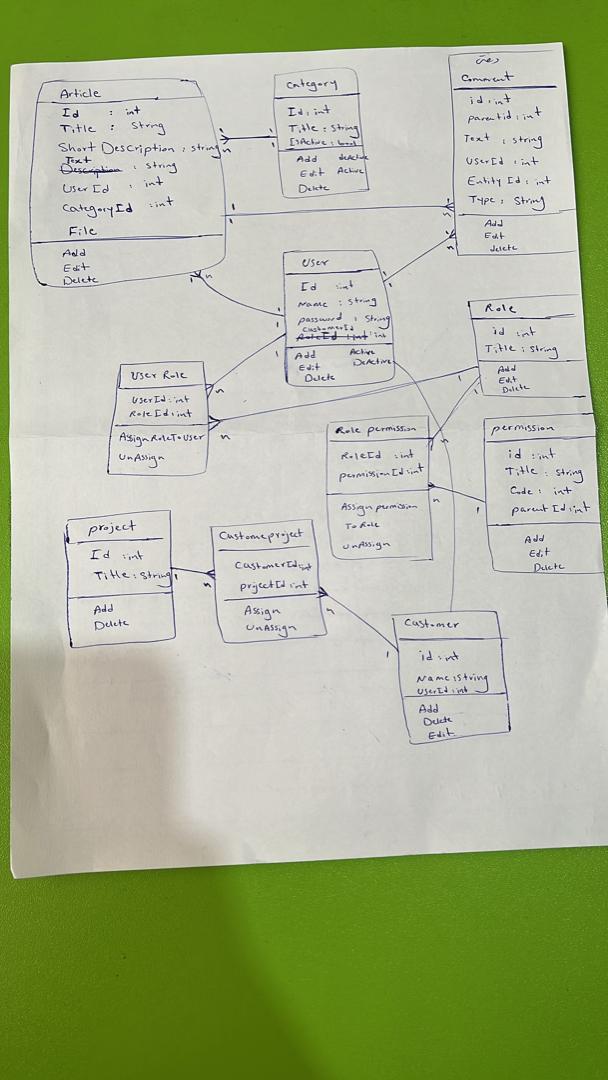 Article
Id : int
Title : String
Short Description : string
Text
Description : string
User Id : int
CategoryId : int
File
Add
Edit
Delete
n
n
1
1
Category
Id : int
Title : String
IsActive : bool
Add deActive
Edit Active
Delete
1
1
Comment
id : int
parentid : int
Text : string
UserId : int
Entity Id : int
Type : String
Add
Edit
delete
n
n
User
Id : int
Name : String
password : String
CustomerId
RoleId : int : int
Add Active
Edit DeActive
Delete
1
1
1
Role
id : int
Title : String
Add
Edit
Delete
1
1
User Role
UserId : int
RoleId : int
AssignRoleToUser
UnAssign
n
n
Role permission
RoleId : int
permissionId : int
Assign permission
To Role
UnAssign
n
n
permission
id : int
Title : String
Code : int
parentId : int
Add
Edit
Delete
1
project
Id : int
Title : String
Add
Delete
1
n
Customeproject
CustomerId : int
prjectId : int
Assign
UnAssign
n
Customer
id : int
Name : String
UserId : int
Add
Delete
Edit
1